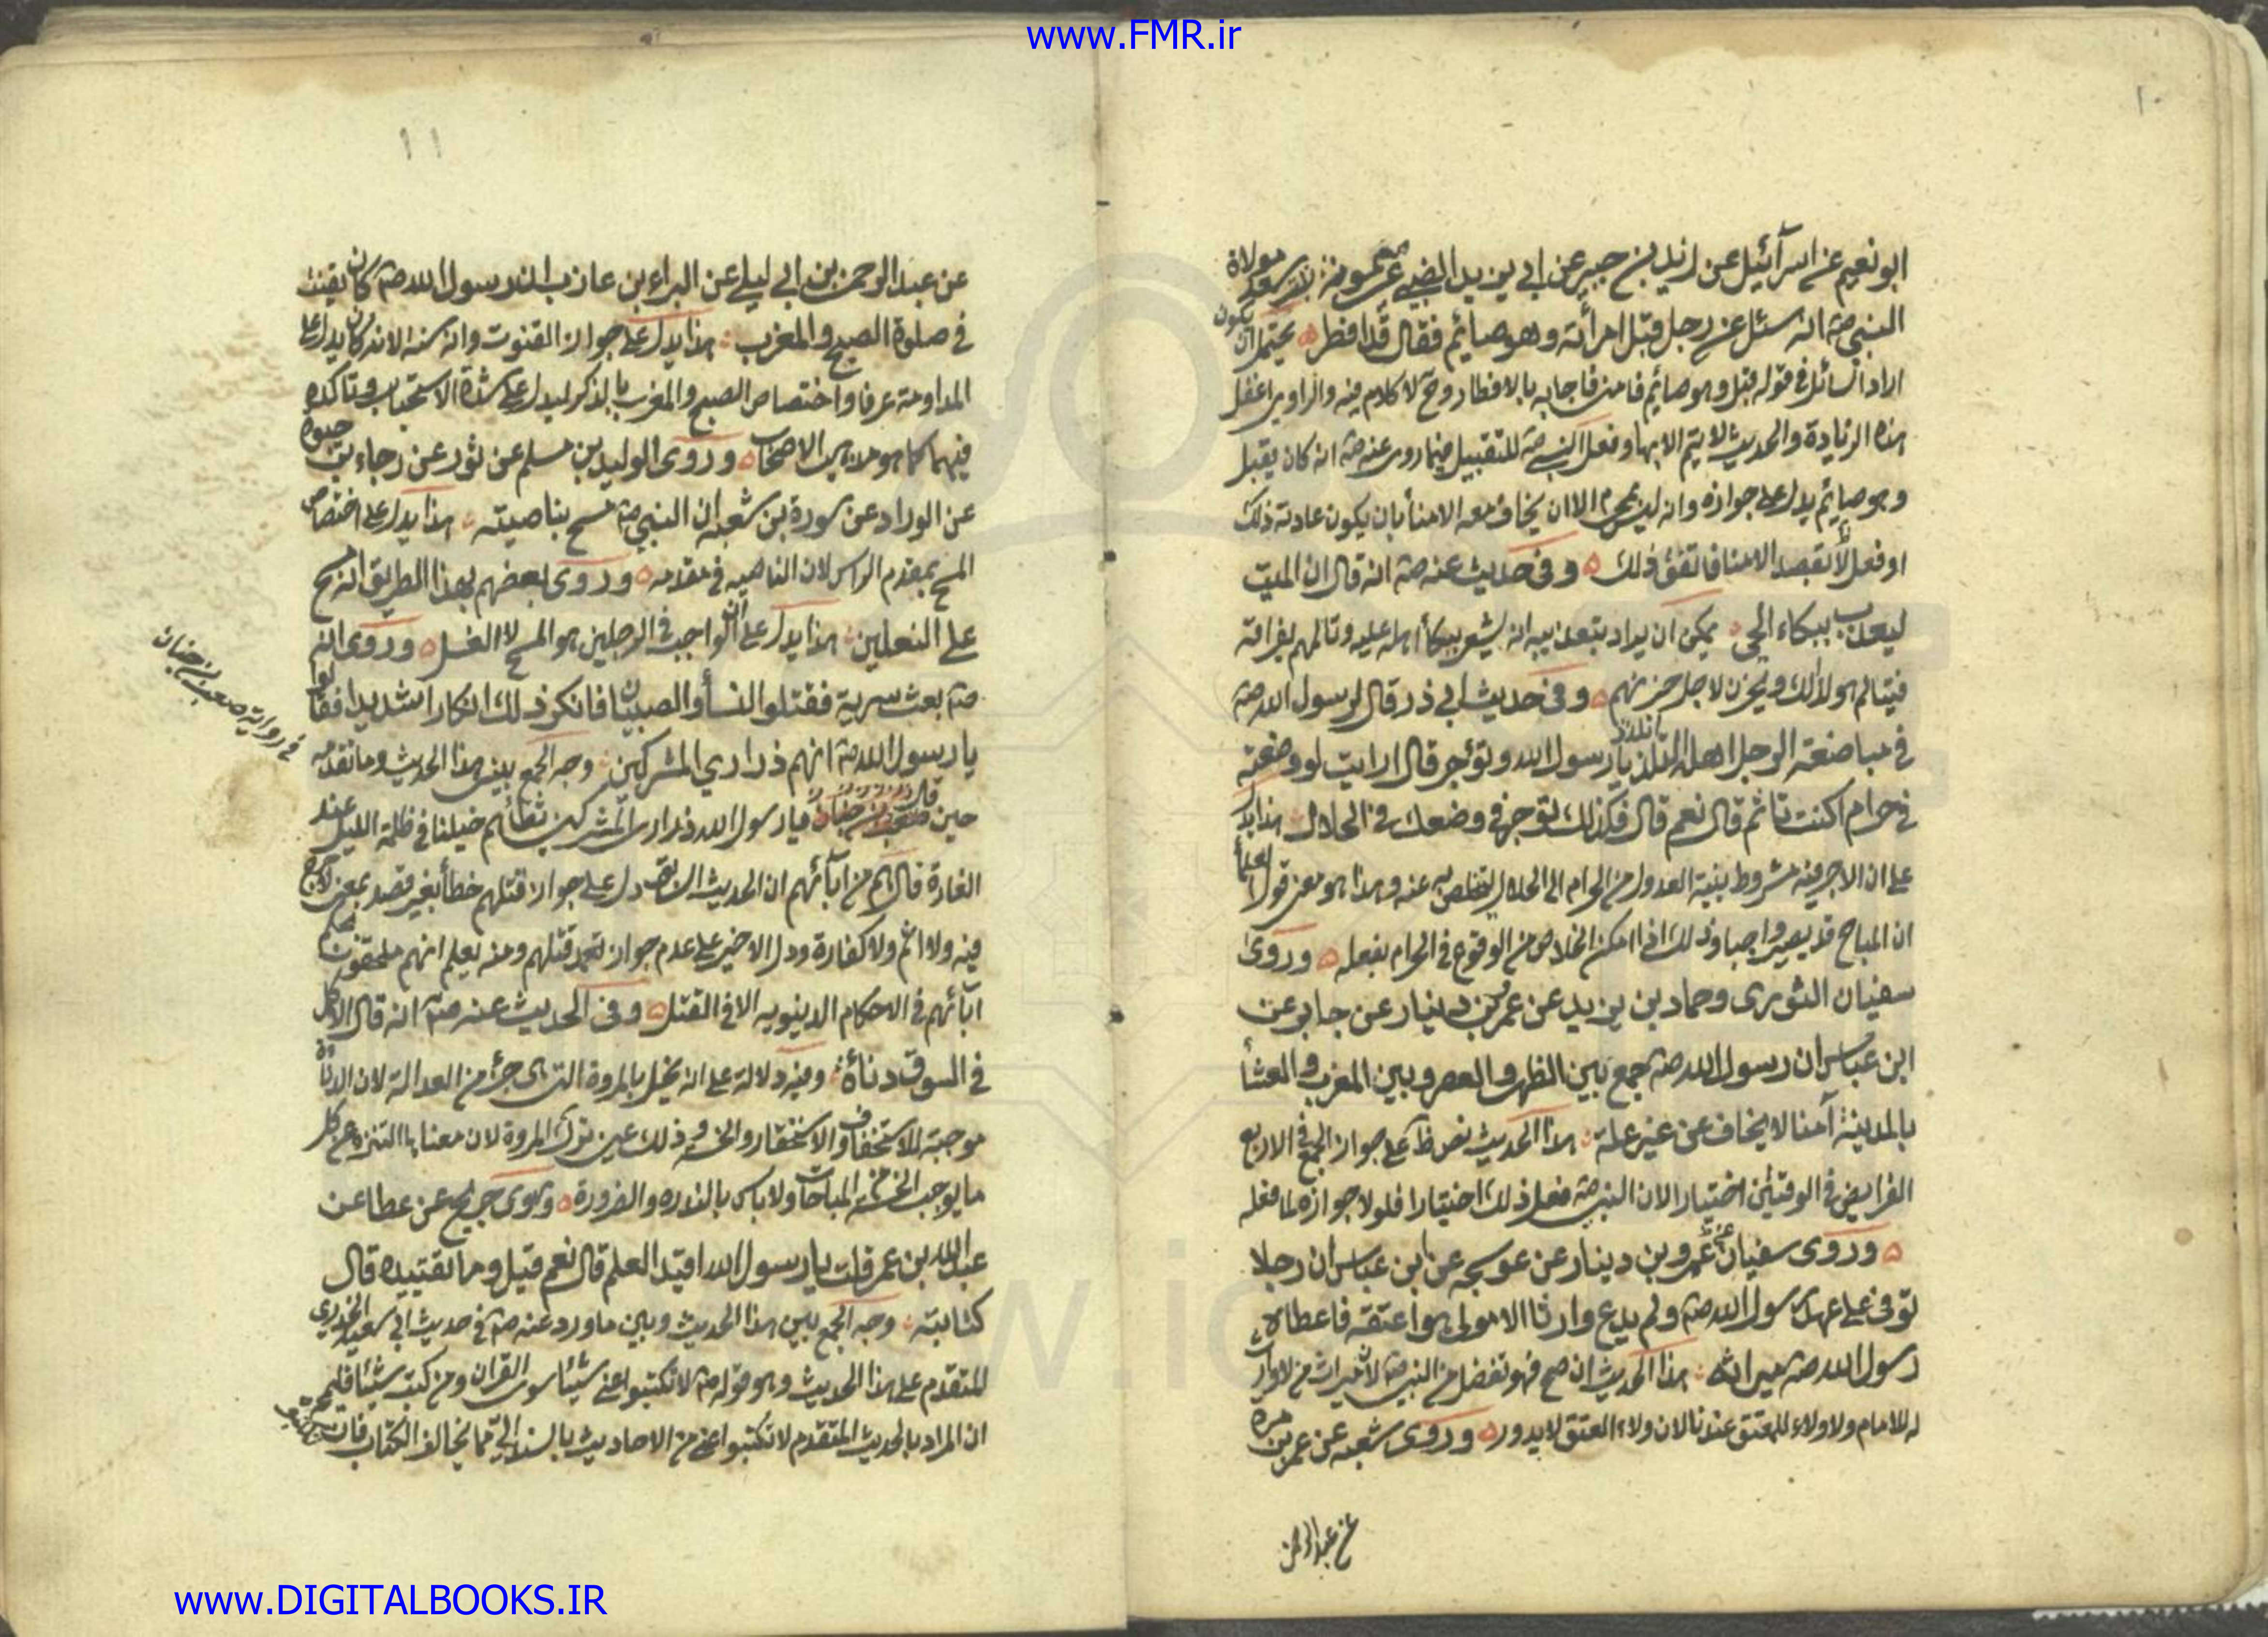 www.FMR.ir
١٠
ابو نعيم عن اسرآئيل عن زيد بن جبير عن ابي يزيد الضبي عن ميمونة مولاة
النبي صه انه سئل عن رجل قبل امرأته وهو صائم فقال قد افطر يحتمل ان يكون
اراد السائل في قوله قبل وهو صائم فامنى فاجابه بالافطار وح لا كلام فيه والراوي اغفل
هذه الزيادة والحديث لا يتم الا بها وفعل النبي صه للتقبيل فيما روى عنه صه انه كان يقبل
وهو صايم يدل على جوازه وانه ليس بمحرم الا ان يخاف معه الامنأ بان يكون عادته ذلك
او فعل لا بقصد الامنا فاتفق ذلك وفى حديث عنه صه انه قال ان الميت
ليعذب ببكاء الحي يمكن ان يراد بتعذيبه انه يشعر ببكأ اهله عليه وتالمهم بفراقه
فيتالم هو لذلك ويحزن لاجل حزنهم وفى حديث ابي ذر قال لرسول الله صه
في مباضعة الرجل اهله انلتذ يا رسول الله ونوجر قال ارايت لو وضعته
في حرام اكنت تاثم قال نعم قال فكذلك توجر في وضعك في الحلال هذا يدل
على ان الاجر فيه مشروط بنية العدول من الحرام الى الحلال ليتخلص به عنه وهذا هو معنى قول العلمأ
ان المباح قد يصير واجبا وذلك اذا امكن الخلاص من الوقوع في الحرام بفعله وروى
سفيان الثوري وحماد بن زيد عن عمرو بن دينار عن جابر عن
ابن عباس ان رسول الله صه جمع بين الظهر والعصر وبين المغرب والعشأ
بالمدينة آمنا لا يخاف عن غير علة هذا الحديث نص ظ على جواز الجمع في الاربع
الفرايض في الوقتين اختيارا لان النبي صه فعل ذلك اختيارا فلولا جوازه لما فعله
وروى سفيان عن عمرو بن دينار عن عوسجه عن ابن عباس ان رجلا
توفى على عهد رسول الله صه ولم يدع وارثا الا مولى هو اعتقه فاعطاه
رسول الله صه ميراثه هذا الحديث ان صح فهو تفضل من النبي صه لان ميراث من لا وارث
له للامام ولا ولاء للمعتق عندنا لان ولاء العتق لا يدور وروى شعبه عن عمرو بن مرة
عن عبد الرحمن
١١
عن عبد الرحمن بن ابي ليلى عن البراء بن عازب ان رسول الله صه كان يقنت
في صلوة الصبح والمغرب هذا يدل على جواز القنوت وانه سنة لان كان يدل على
المداومة عرفا واختصاص الصبح والمغرب بالذكر ليدل على شدة الاستحباب وتاكده
فيهما كما هو مذهب الاصحاب وروى الوليد بن مسلم عن ثور عن رجاء بن حيوة
عن الوراد عن بن شعبه ان النبي صه مسح بناصيته هذا يدل على اختصاص
المسح بمقدم الراس لان الناصيه في مقدمه وروى بعضهم بهذا الطريق انه مسح
على النعلين هذا يدل على ان الواجب في الرجلين هو المسح لا الغسل وروى انه
صه بعث سرية فقتلوا النسأ والصبيان فانكر ذلك انكارا شديدا فقالوا
يا رسول الله صه انهم ذراري المشركين وجه الجمع بين هذا الحديث وما تقدمه
في رواية صعب بن
حين قال يا رسول الله ذراري المشركين تطأهم خيلنا في ظلمة الليل عند
الغارة قال هم من آبائهم ان الحديث السابق دل على جواز قتلهم خطأ بغير قصد بمعنى لا حرج
فيه ولا اثم ولا كفارة ودل الاخير على عدم جواز تعمد قتلهم ومنه يعلم انهم ملحقون بحكم
آبائهم في الاحكام الدنيويه الا في القتل وفى الحديث عنه صه انه قال الاكل
في السوق دنأة وفيه دلالة على انه يخل بالمروة التي هي جزء من العدالة لان الدناة
موجبة للاستخفاف والاستحقار والخسة وذلك عين ترك المروة لان معناها التنزه عن كل
ما يوجب الخسة من المباحات ولا باس بالندره والضرورة وروى جريج عن عطا عن
عبد الله بن عمر قلت يا رسول الله اقيد العلم قال نعم قيل وما تقييده قال
كتابته وجه الجمع بين هذا الحديث وبين ما ورد عنه صه في حديث ابي سعيد الخدري
المتقدم على هذا الحديث وهو قوله صه لا تكتبوا عني شيئا سوى القران ومن كتب شيئا فليمحه
ان المراد بالحديث المتقدم لا تكتبوا عني من الاحاديث بالسند الي مما يخالف الكتاب فان
www.DIGITALBOOKS.IR